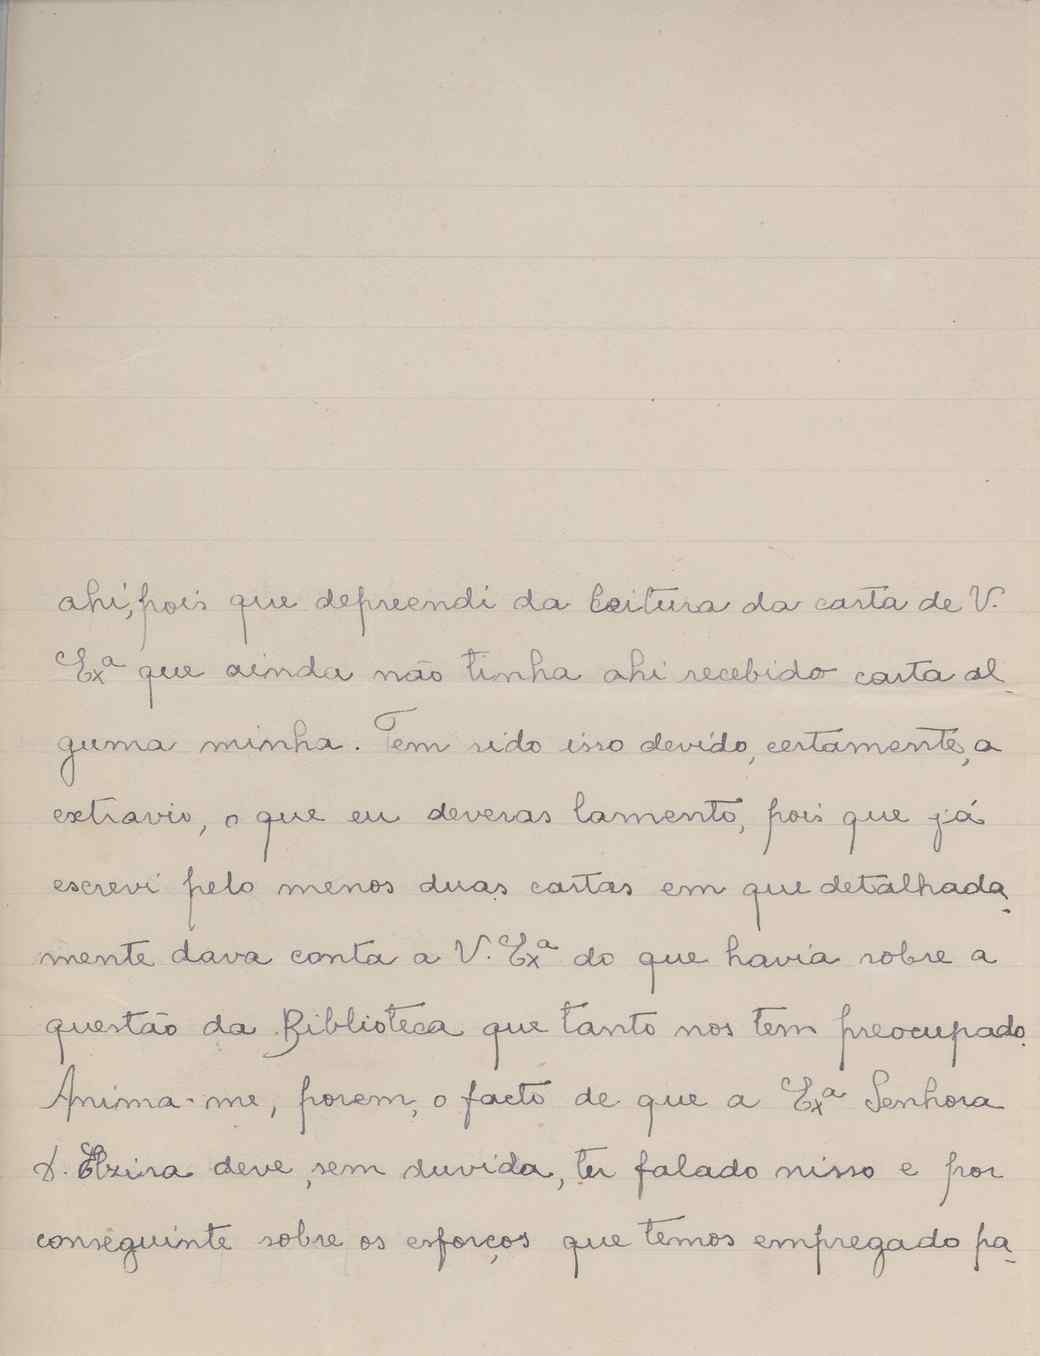 ahi, pois que depreendi da leitura da carta de V.
Exª que ainda não tinha ahi recebido carta al-
guma minha. Tem sido isso devido, certamente, a
extravio, o que eu deveras lamento, pois que já
escrevi pelo menos duas cartas em que detalhada-
mente dava conta a V. Exª do que havia sobre a
questão da Biblioteca que tanto nos tem preocupado.
Anima-me, porem, o facto de que a Exª Senhora
D. Elzira deve, sem duvida, ter falado nisso e por
conseguinte sobre os esforços que temos empregado pa-